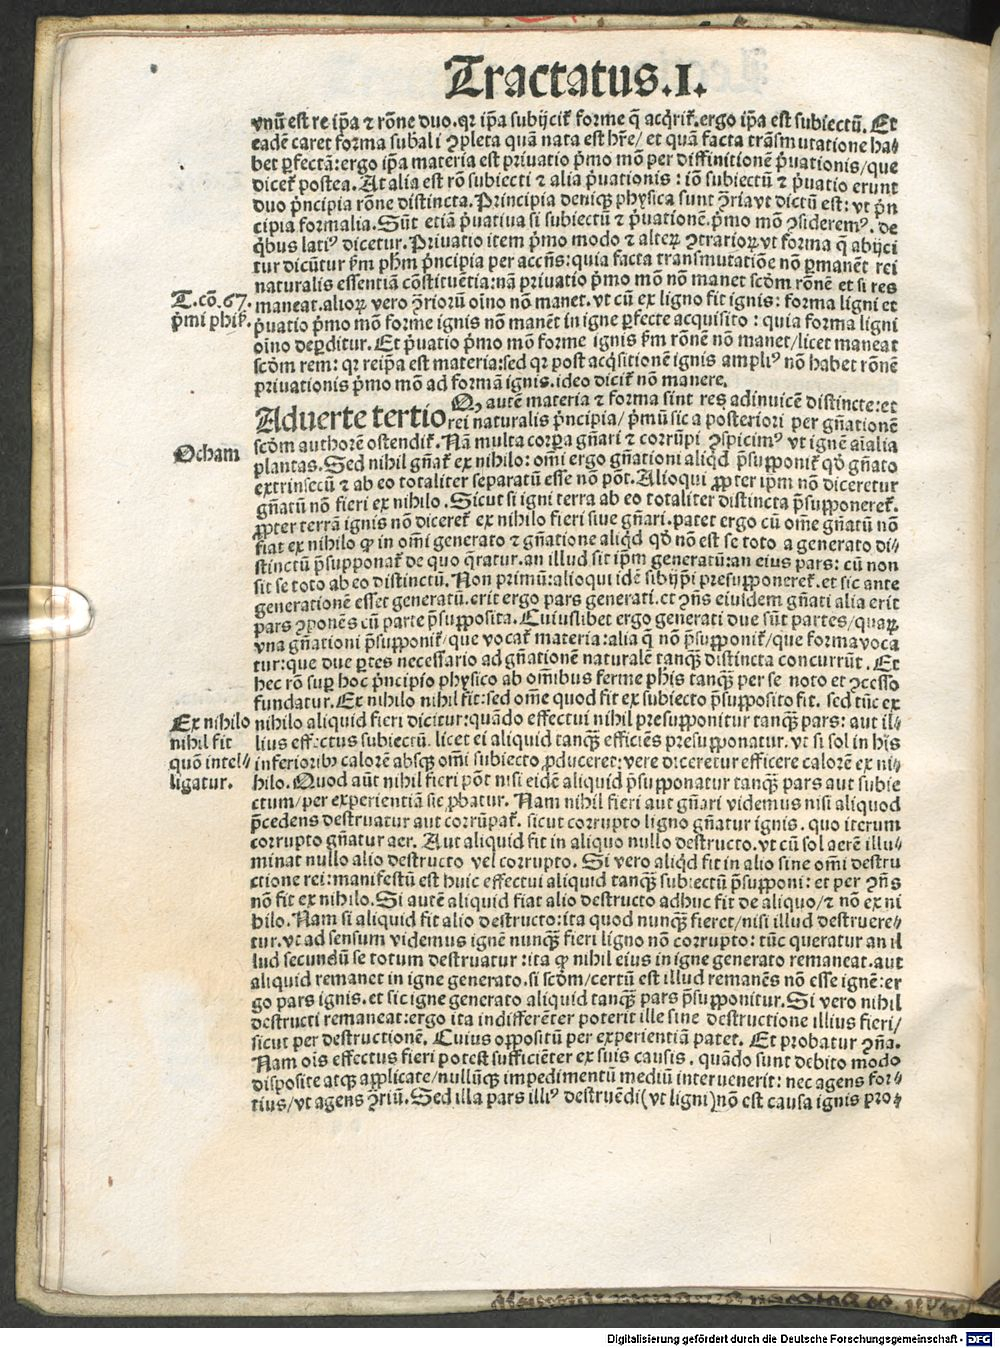 Tractatus.I.
vnũ est re ip̃a ⁊ rõne duo.qꝛ ip̃a subijcit᷑ forme q̃ acq̇rit᷑.ergo ip̃a est subiectũ. Et
eadẽ caret forma sub̃ali ꝯpleta quã nata est hr̃e/ et quã facta trãsmutatione ha⸗
bet ꝑfectã:ergo ip̃a materia est priuatio p̃mo mõ per diffinitionẽ p̃uationis/que
dicet᷑ postea. At alia est rõ subiecti ⁊ alia p̃uationis : iõ subiectũ ⁊ p̃uatio erunt
duo p̃ncipia rõne distincta. Principia deniqꝫ physica sunt ꝯ̃ria vt dictũ est: vt p̃n
cipia formalia. Sũt etiã p̃uatiua si subiectũ ⁊ p̃uationẽ p̃mo mõ ꝯsideremꝰ. de
q̇bus latiꝰ dicetur. Priuatio item p̃mo modo ⁊ alteꝝ ꝯtrarioꝝ vt forma q̃ abijci
tur dicũtur ẜm ph̃m p̃ncipia per accñs: quia facta transmutatiõe nõ ꝑmanẽt rei
naturalis essentiã cõstituẽtia: nã priuatio p̃mo mõ nõ manet scḋm rõnẽ et si res
T. cõ. 67. maneat. alioꝝ vero ꝯ̃rioꝝ oĩno nõ manet. vt cũ ex ligno fit ignis: forma ligni et
p̃mi phik᷑. p̃uatio p̃mo mõ forme ignis nõ manẽt in igne ꝑfecte acquisito : quia forma ligni
oĩno deꝑditur. Et p̃uatio p̃mo mõ forme ignis ẜm rõnẽ nõ manet/licet maneat
scḋm rem: qꝛ reip̃a est materia: sed qꝛ post acq̇sitionẽ ignis ampliꝰ nõ habet rõnẽ
priuationis p̃mo mõ ad formã ignis. ideo dicit᷑ nõ manere.
Aduerte tertio Qꝫ autẽ materia ⁊ forma sint res adinuicẽ distincte: et
rei naturalis p̃ncipia/ p̃mũ sic a posteriori per gñationẽ
Ocham scḋm authorẽ ostendit᷑. Nã multa corꝑa gñari ⁊ corrũpi ꝯspicimꝰ vt ignẽ aĩalia
plantas. Sed nihil gñat᷑ ex nihilo: om̃i ergo gñationi aliq̇d p̃supponit᷑ qḋ gñato
extrinsecũ ⁊ ab eo totaliter separatũ esse nõ põt. Alioqui ꝓpter ip̃m nõ diceretur
gñatũ nõ fieri ex nihilo. Sicut si igni terra ab eo totaliter distincta p̃supponeret᷑.
ꝓpter terrã ignis nõ diceret᷑ ex nihilo fieri siue gñari. patet ergo cũ om̃e gñatũ nõ
fiat ex nihilo ꝙ in om̃i generato ⁊ gñatione aliq̇d qḋ nõ est se toto a generato di⸗
stinctũ p̃supponat᷑ de quo q̃ratur. an illud sit ip̃m generatũ: an eius pars: cũ non
sit se toto ab eo distinctũ. Non primũ: alioqui idẽ sibijp̃i presupponeret᷑. et sic ante
generationẽ esset generatũ. erit ergo pars generati. et ꝯñs eiusdem gñati alia erit
pars ꝯponẽs cũ parte p̃supposita. Cuiuslibet ergo generati due sũt partes/quaꝝ
vna gñationi p̃supponit᷑/que vocat᷑ materia: alia q̃ nõ p̃supponit᷑/que forma voca
tur: que due ꝑtes necessario ad gñationẽ naturalẽ tanqꝫ̃ distincta concurrũt. Et
hec rõ suꝑ hoc p̃ncipio physico ab omĩbus ferme ph̃is tanqꝫ̃ per se noto et ꝯcesso
fundatur. Ex nihilo nihil fit: sed om̃e quod fit ex subiecto p̃supposito fit. sed tũc ex
Ex nihilo nihilo aliquid fieri dicitur: quãdo effectui nihil presupponitur tanqꝫ̃ pars: aut il⸗
nihil fit lius effectus subiectũ. licet ei aliquid tanqꝫ̃ efficiẽs presupponatur. vt si sol in his
quõ intel⸗ inferioribꝰ calorẽ absqꝫ om̃i subiecto ꝓduceret: vere diceretur efficere calorẽ ex ni⸗
ligatur. hilo. Quod aũt nihil fieri põt nisi eidẽ aliquid p̃supponatur tanqꝫ̃ pars aut subie
ctum/per experientiã sic ꝓbatur. Nam nihil fieri aut gñari videmus nisi aliquod
p̃cedens destruatur aut corrũpat᷑. sicut corrupto ligno gñatur ignis. quo iterum
corrupto gñatur aer. Aut aliquid fit in aliquo nullo destructo. vt cũ sol aerẽ illu⸗
minat nullo alio destructo vel corrupto. Si vero aliq̇d fit in alio sine om̃i destru
ctione rei: manifestũ est huic effectui aliquid tanqꝫ̃ subiectũ p̃supponi: et per ꝯñs
nõ fit ex nihilo. Si autẽ aliquid fiat alio destructo adhuc fit de aliquo/⁊ nõ ex ni
hilo. Nam si aliquid fit alio destructo: ita quod nunqꝫ̃ fieret/nisi illud destruere⸗
tur. vt ad sensum videmus ignẽ nunqꝫ̃ fieri ligno nõ corrupto: tũc queratur an il
lud secundũ se totum destruatur: ita ꝙ nihil eius in igne generato remaneat. aut
aliquid remanet in igne generato. si scḋm/certũ est illud remanẽs nõ esse ignẽ: er
go pars ignis. et sic igne generato aliquid tanqꝫ̃ pars p̃supponitur. Si vero nihil
destructi remaneat: ergo ita indifferẽter poterit ille sine destructione illius fieri/
sicut per destructionẽ. Cuius oppositũ per experientiã patet. Et probatur ꝯña.
Nam oĩs effectus fieri potest sufficiẽter ex suis causis. quãdo sunt debito modo
disposite atqꝫ applicate/nullũqꝫ impedimentũ mediũ interuenerit: nec agens for⸗
tius/vt agens ꝯ̃riũ. Sed illa pars illiꝰ destruẽdi (vt ligni) nõ est causa ignis pro⸗